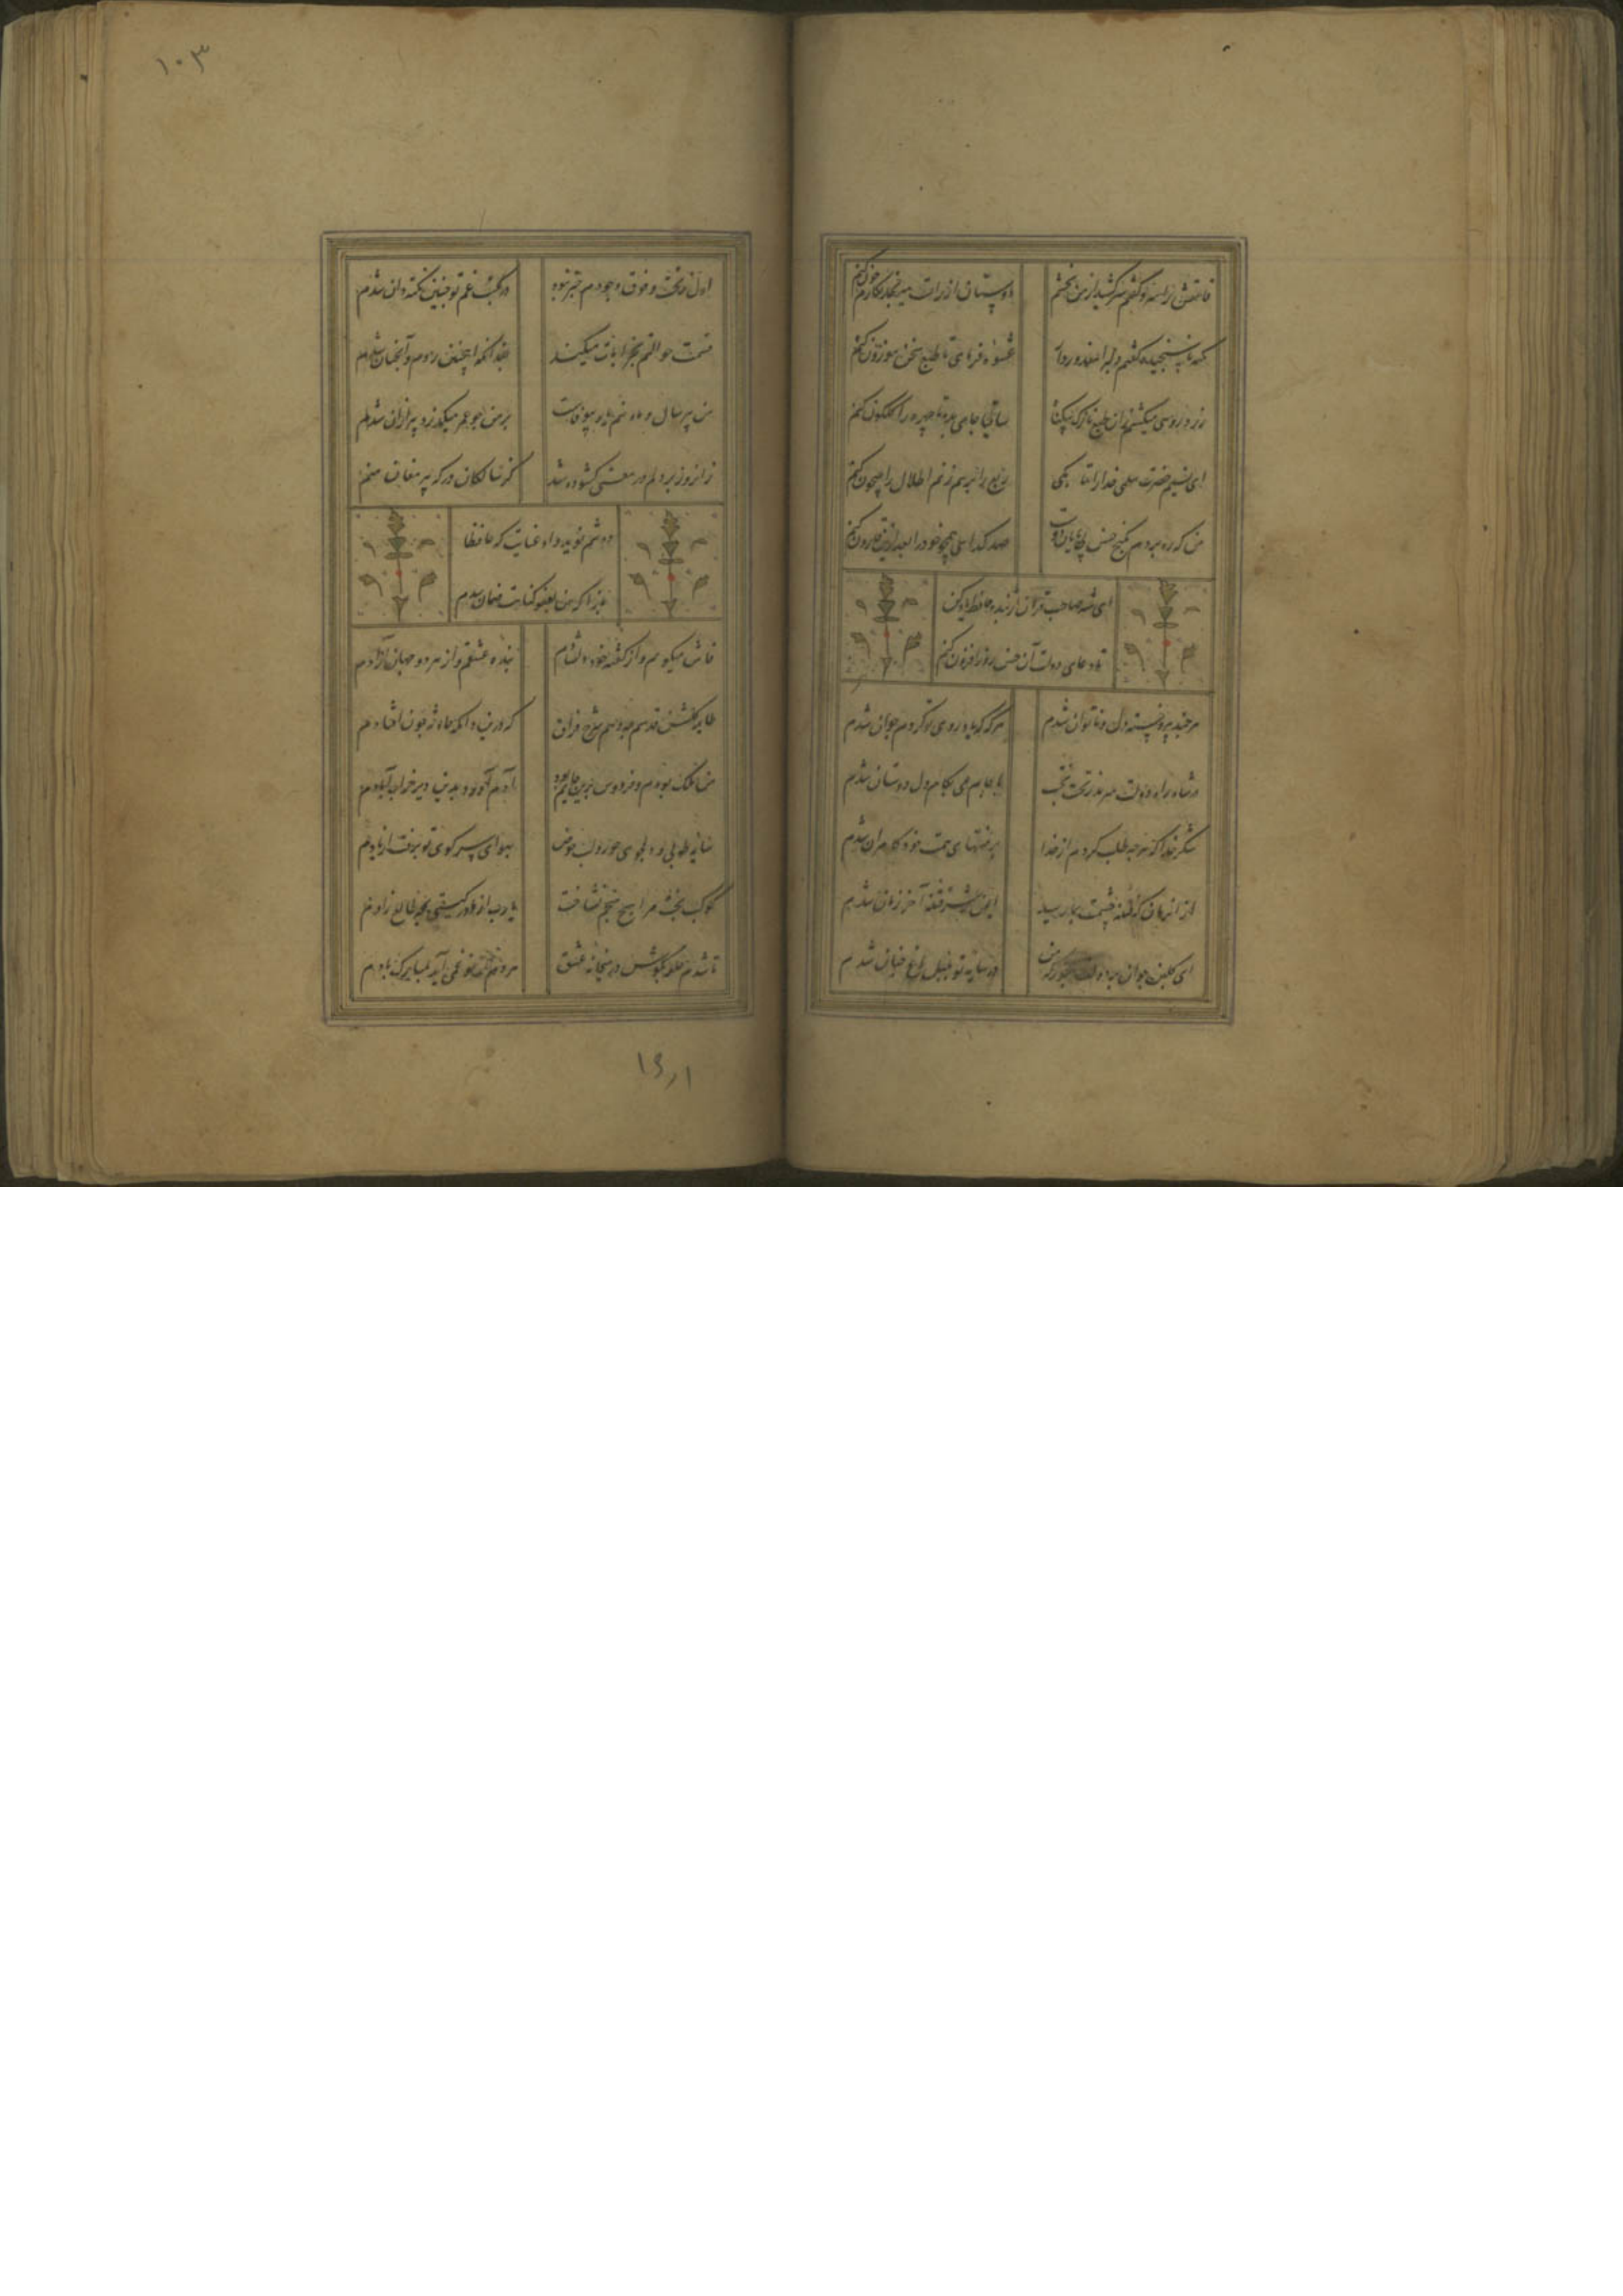 قامتش را سرو گفتم سر کشید از من بخشم
دوستان از راست میرنجد نگارم چون کنم
نکته ناسنجیده گفتم دلبرا معذور دار
عشوه فرمای تا طبع سخن موزون کنم
زرد رویی میکشم زان طبع نازک بیگناه
ساقیا جامی بده تا چهره را گلگون کنم
ای نسیم حضرت سلمی خدا را تا بکی
ربع را برهم زنم اطلال را جیحون کنم
من که ره بردم بگنج حسن بی پایان دوست
صد گدای همچو خود را بعد ازین قارون کنم
ای مه صاحب قران از بنده حافظ یاد کن
تا دعای دولت آن حسن روز افزون کنم
هر چند پیر و خسته دل و ناتوان شدم
هر گه که یاد روی تو کردم جوان شدم
در شاه راه دولت سرمد بتخت بخت
با جام می بکام دل دوستان شدم
شکر خدا که هر چه طلب کردم از خدا
بر منتهای همت خود کامران شدم
از آن زمان که فتنه چشمت بمن رسید
ایمن ز شر فتنه آخر زمان شدم
ای گلبن جوان بر دولت بخور که من
در سایه تو بلبل باغ جنان شدم
۱۰۳
اول ز تحت و فوق وجودم خبر نبود
در مکتب غم تو چنین نکته دان شدم
قسمت حوالتم بخرابات میکند
چندانکه اینچنین زدم و آنچنان شدم
من پیر سال و ماه نیم یار بیوفاست
بر من چو عمر میگذرد پیر ازان شدم
زانروز بر دلم در معنی گشوده شد
کز ساکنان درگه پیر مغان شدم
دوشم نوید داد عنایت که حافظا
باز آ که من بعفو گناهت ضمان شدم
فاش میگویم و از گفته خود دلشادم
بنده عشقم و از هر دو جهان آزادم
طایر گلشن قدسم چه دهم شرح فراق
که درین دامگه حادثه چون افتادم
من ملک بودم و فردوس برین جایم بود
آدم آورد بدین دیر خراب آبادم
سایه طوبی و دلجوی حور و لب حوض
بهوای سر کوی تو برفت از یادم
کوکب بخت مرا هیچ منجم نشناخت
یا رب از مادر گیتی بچه طالع زادم
تا شدم حلقه بگوش در میخانه عشق
هر دم از نو غمی آید بمبارک بادم